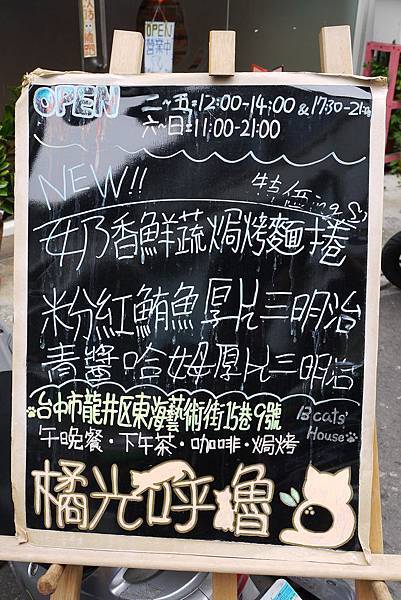 OPEN
營業中
OPEN
二~五=12:00-14:00 & 17:30-21:00
六~日=11:00-21:00
NEW!!
特價ing
奶香鮮蔬焗烤麵捲
粉紅鮪魚厚片三明治
青醬哈姆厚片三明治
台中市龍井区東海藝術街15巷9號
B cats'
House
午晚餐·下午茶·咖啡·焗烤
橘光呼魯